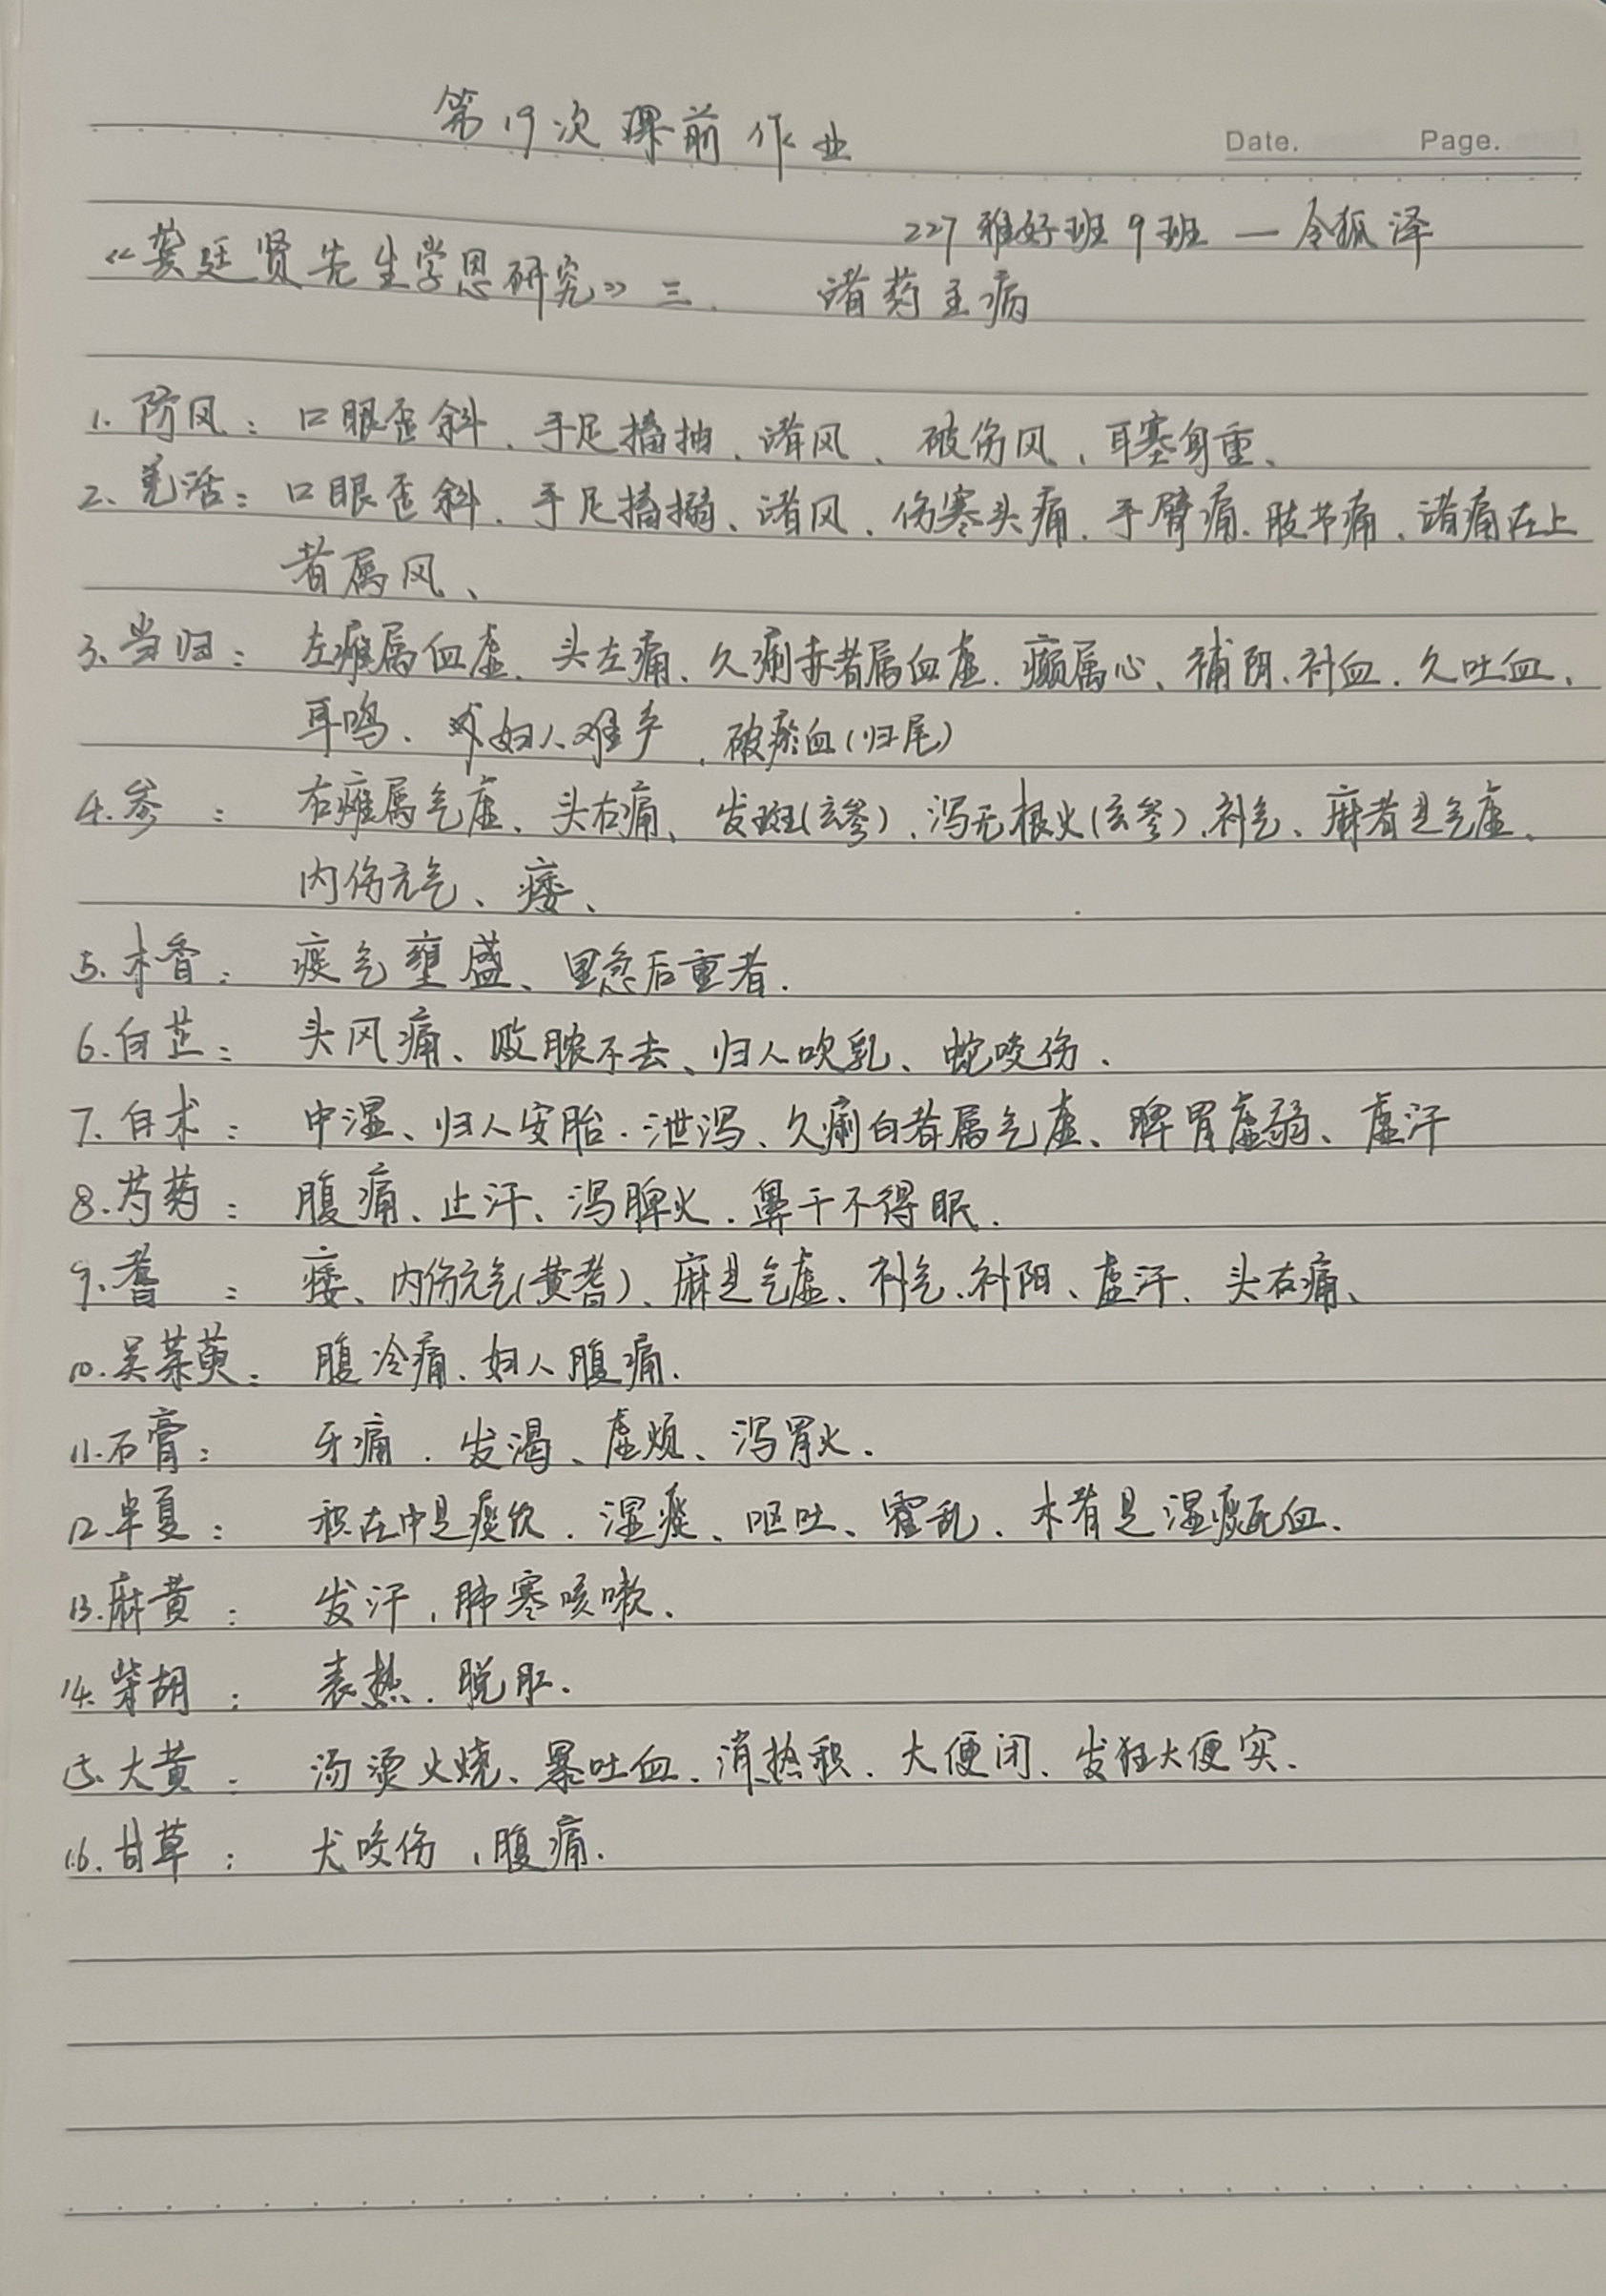 第19次课前作业
Date. Page.
227雅好班9班 — 令狐泽
《龚廷贤先生学思研究》三. 诸药主病
1. 防风: 口眼歪斜、手足搐抽、诸风、破伤风、耳塞身重、
2、羌活: 口眼歪斜、手足搐搦、诸风、伤寒头痛、手臂痛、肢节痛、诸痛在上
者属风、
3、当归: 左瘫属血虚、头左痛、久痢赤者属血虚、癫属心、補阴、补血、久吐血、
耳鸣、妇人难产、破瘀血(归尾)
4.参: 右瘫属气虚、头右痛、发斑(玄参)、泻无根火(玄参)、补气、麻者是气虚、
内伤元气、痿、
5.木香: 痰气壅盛、里急后重者.
6.白芷: 头风痛、败脓不去、归人吹乳、蛇咬伤.
7.白术: 中湿、归人安胎.泄泻、久痢白者属气虚、脾胃虚弱、虚汗
8.芍药: 腹痛、止汗、泻脾火.鼻干不得眠.
9.耆: 痿、内伤元气(黄耆)、麻是气虚、补气、补阳、虚汗、头右痛、
10.吴茱萸: 腹冷痛、妇人腹痛.
11.石膏: 牙痛.发渴、虚烦、泻胃火.
12.半夏: 积在中是痰饮.湿痰、呕吐、霍乱、木者是湿痰死血.
13.麻黄: 发汗,肺寒咳嗽.
14.柴胡: 表热.脱肛.
15.大黄: 汤烫火烧、暴吐血、消热积、大便闭、发狂大便实.
16.甘草: 犬咬伤,腹痛.